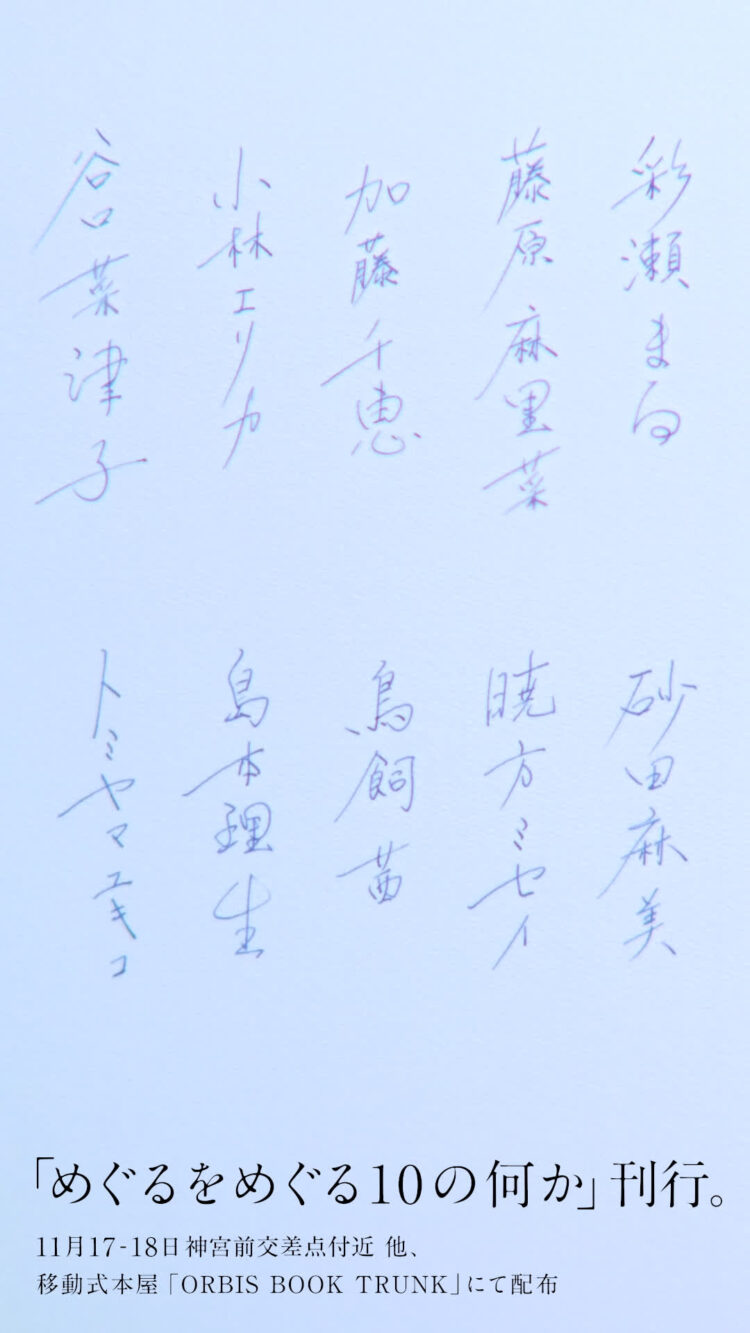 彩瀬まる
藤原麻里菜
加藤千恵
小林エリカ
谷口菜津子
砂田麻美
暁方ミセイ
鳥飼茜
島本理生
トミヤマユキコ
「めぐるをめぐる10の何か」刊行。
11月17-18日神宮前交差点付近 他、
移動式本屋「ORBIS BOOK TRUNK」にて配布